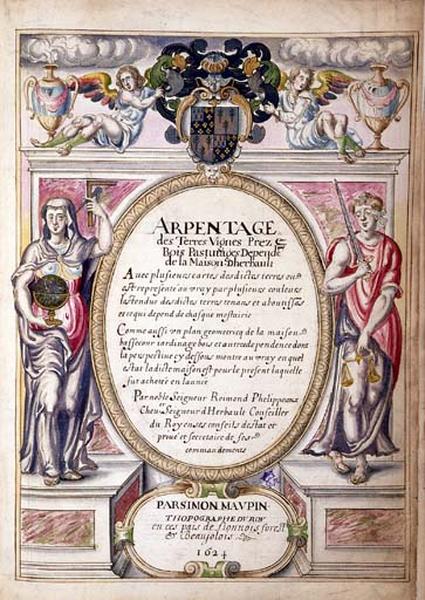 ARPENTAGE
des Terres Vignes Prez &
Bois Pasturages Depende
de la Maison Dherbault
Avec plusieurs cartes desdictes terres ou
est representé au vray par plusieurs couleurs
lastendue desdictes terres tenans et aboutissās
et ce qui depend de chasque mestairie
Comme aussi un plan geometricq de la maison
bassecour iardinage bois et autre dependence dont
la perspective cy dessous montre au vray en quel
estat la dicte maison est pour le present laquelle
fut acheteé en lanneé
Par noble Seigneur Reimond Phelippeaux
Cheuer Seigneur d Herbault Conseiller
du Roy en ses conseils destat et
priué et secretaire de ses
commandements
PAR SIMON MAVPIN
THOPOGRAPHE DV ROY
en ces païs de Lionnois forest
& Beaujolois
1624